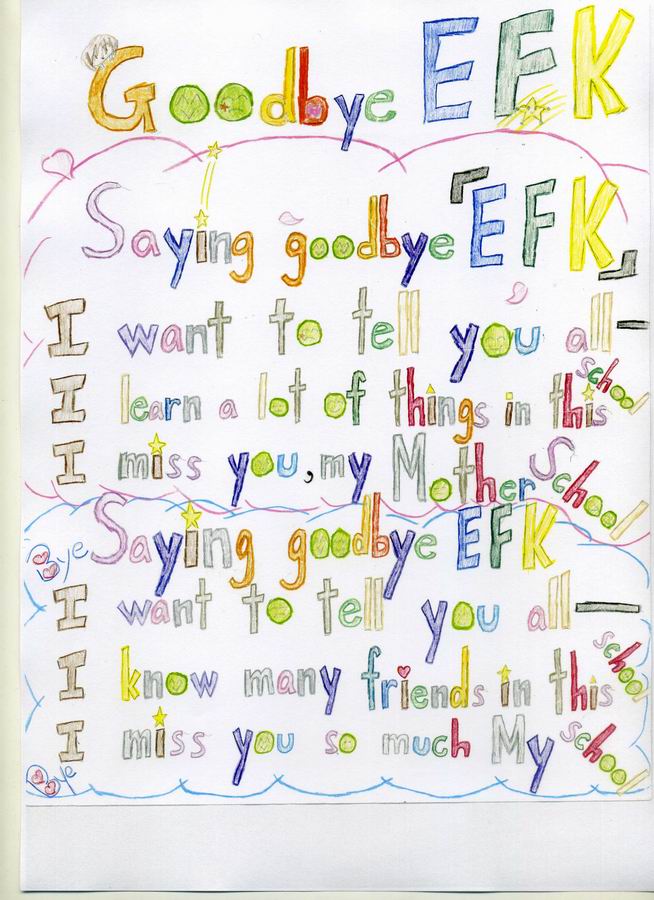 Goodbye EFK
Saying goodbye「EFK」
I want to tell you all—
I learn a lot of things in this school
I miss you,my Mother School
Saying goodbye EFK
Bye
I want to tell you all—
I know many friends in this school
I miss you so much My school
Bye